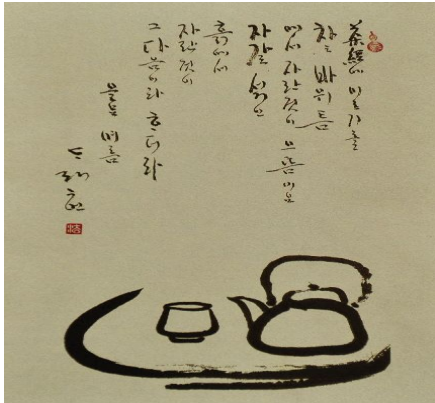 茶經에 이르기를
차는 바위 틈
에서 자란 것이 으뜸이요
자갈
흙에서
자란 것이
그 다음이라 하더라
여름